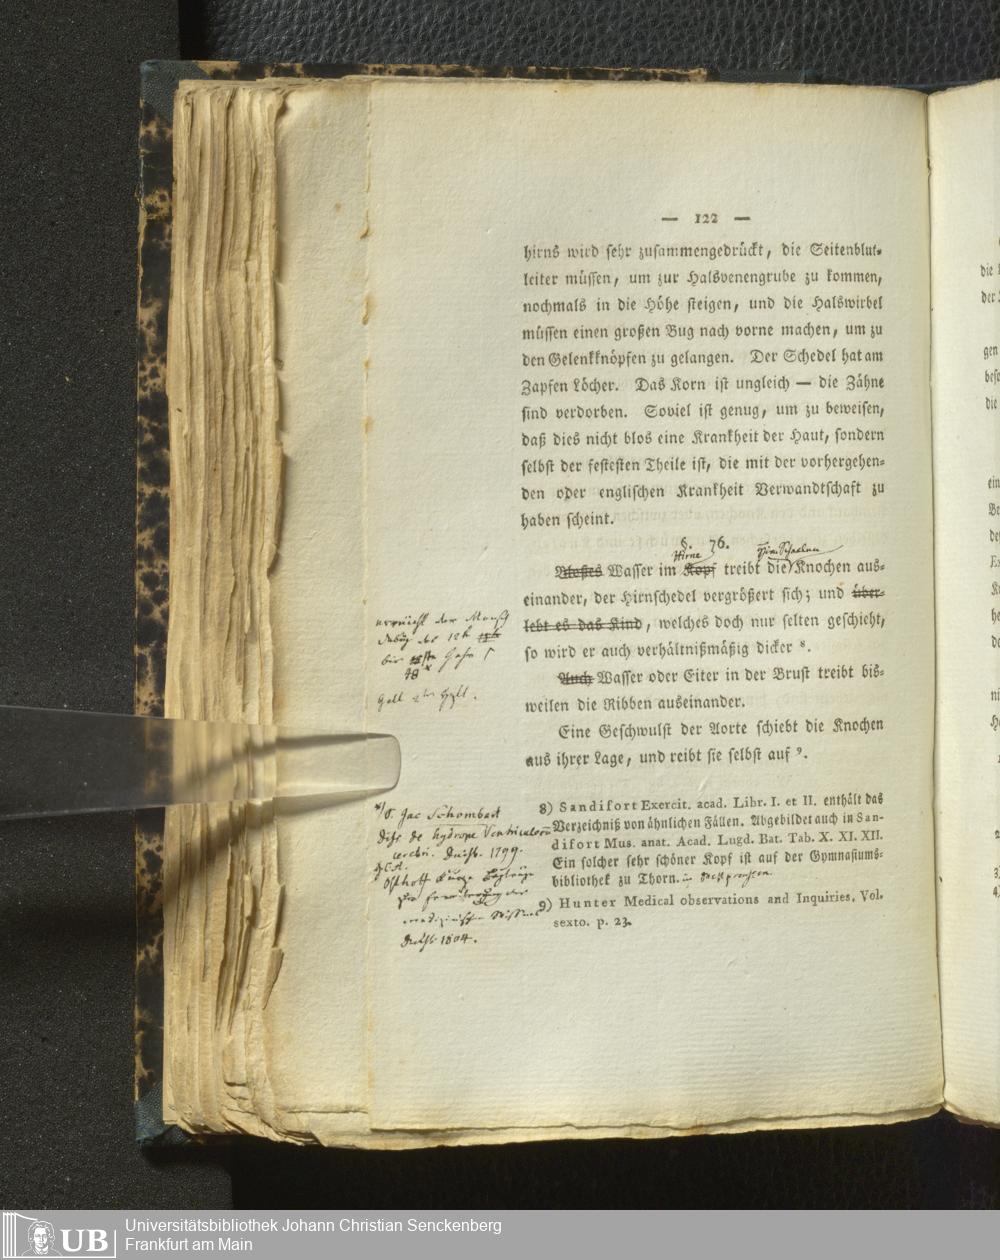 — 122 —
hirns wird sehr zusammengedrückt, die Seitenblut-
leiter müssen, um zur Halsvenengrube zu kommen,
nochmals in die Höhe steigen, und die Halswirbel
müssen einen großen Bug nach vorne machen, um zu
den Gelenkknöpfen zu gelangen. Der Schedel hat am
Zapfen Löcher. Das Korn ist ungleich — die Zähne
sind verdorben. Soviel ist genug, um zu beweisen,
daß dies nicht blos eine Krankheit der Haut, sondern
selbst der festesten Theile ist, die mit der vorhergehen-
den oder englischen Krankheit Verwandtschaft zu
haben scheint.
§. 76.
Hirne
Bloßes Wasser im Kopf treibt die Knochen aus-
einander, der Hirnschedel vergrößert sich; und über-
lebt es das Kind, welches doch nur selten geschieht,
so wird er auch verhältnißmäßig dicker 8.
Auch Wasser oder Eiter in der Brust treibt bis-
weilen die Ribben auseinander.
Eine Geschwulst der Aorte schiebt die Knochen
aus ihrer Lage, und reibt sie selbst auf 9.
erreicht der Mensch
18
S. Jac Schombart
Diss. de hydrope Ventriculorum
cerebri. Duisb. 1799.
Osthoff
Duisb. 1804.
8) Sandifort Exercit. acad. Libr. I. et II. enthält das
Verzeichniß von ähnlichen Fällen. Abgebildet auch in San-
difort Mus. anat. Acad. Lugd. Bat. Tab. X. XI. XII.
Ein solcher sehr schöner Kopf ist auf der Gymnasiums-
bibliothek zu Thorn. in Westpreussen.
9) Hunter Medical observations and Inquiries, Vol.
sexto. p. 23.
UB
Universitätsbibliothek Johann Christian Senckenberg
Frankfurt am Main